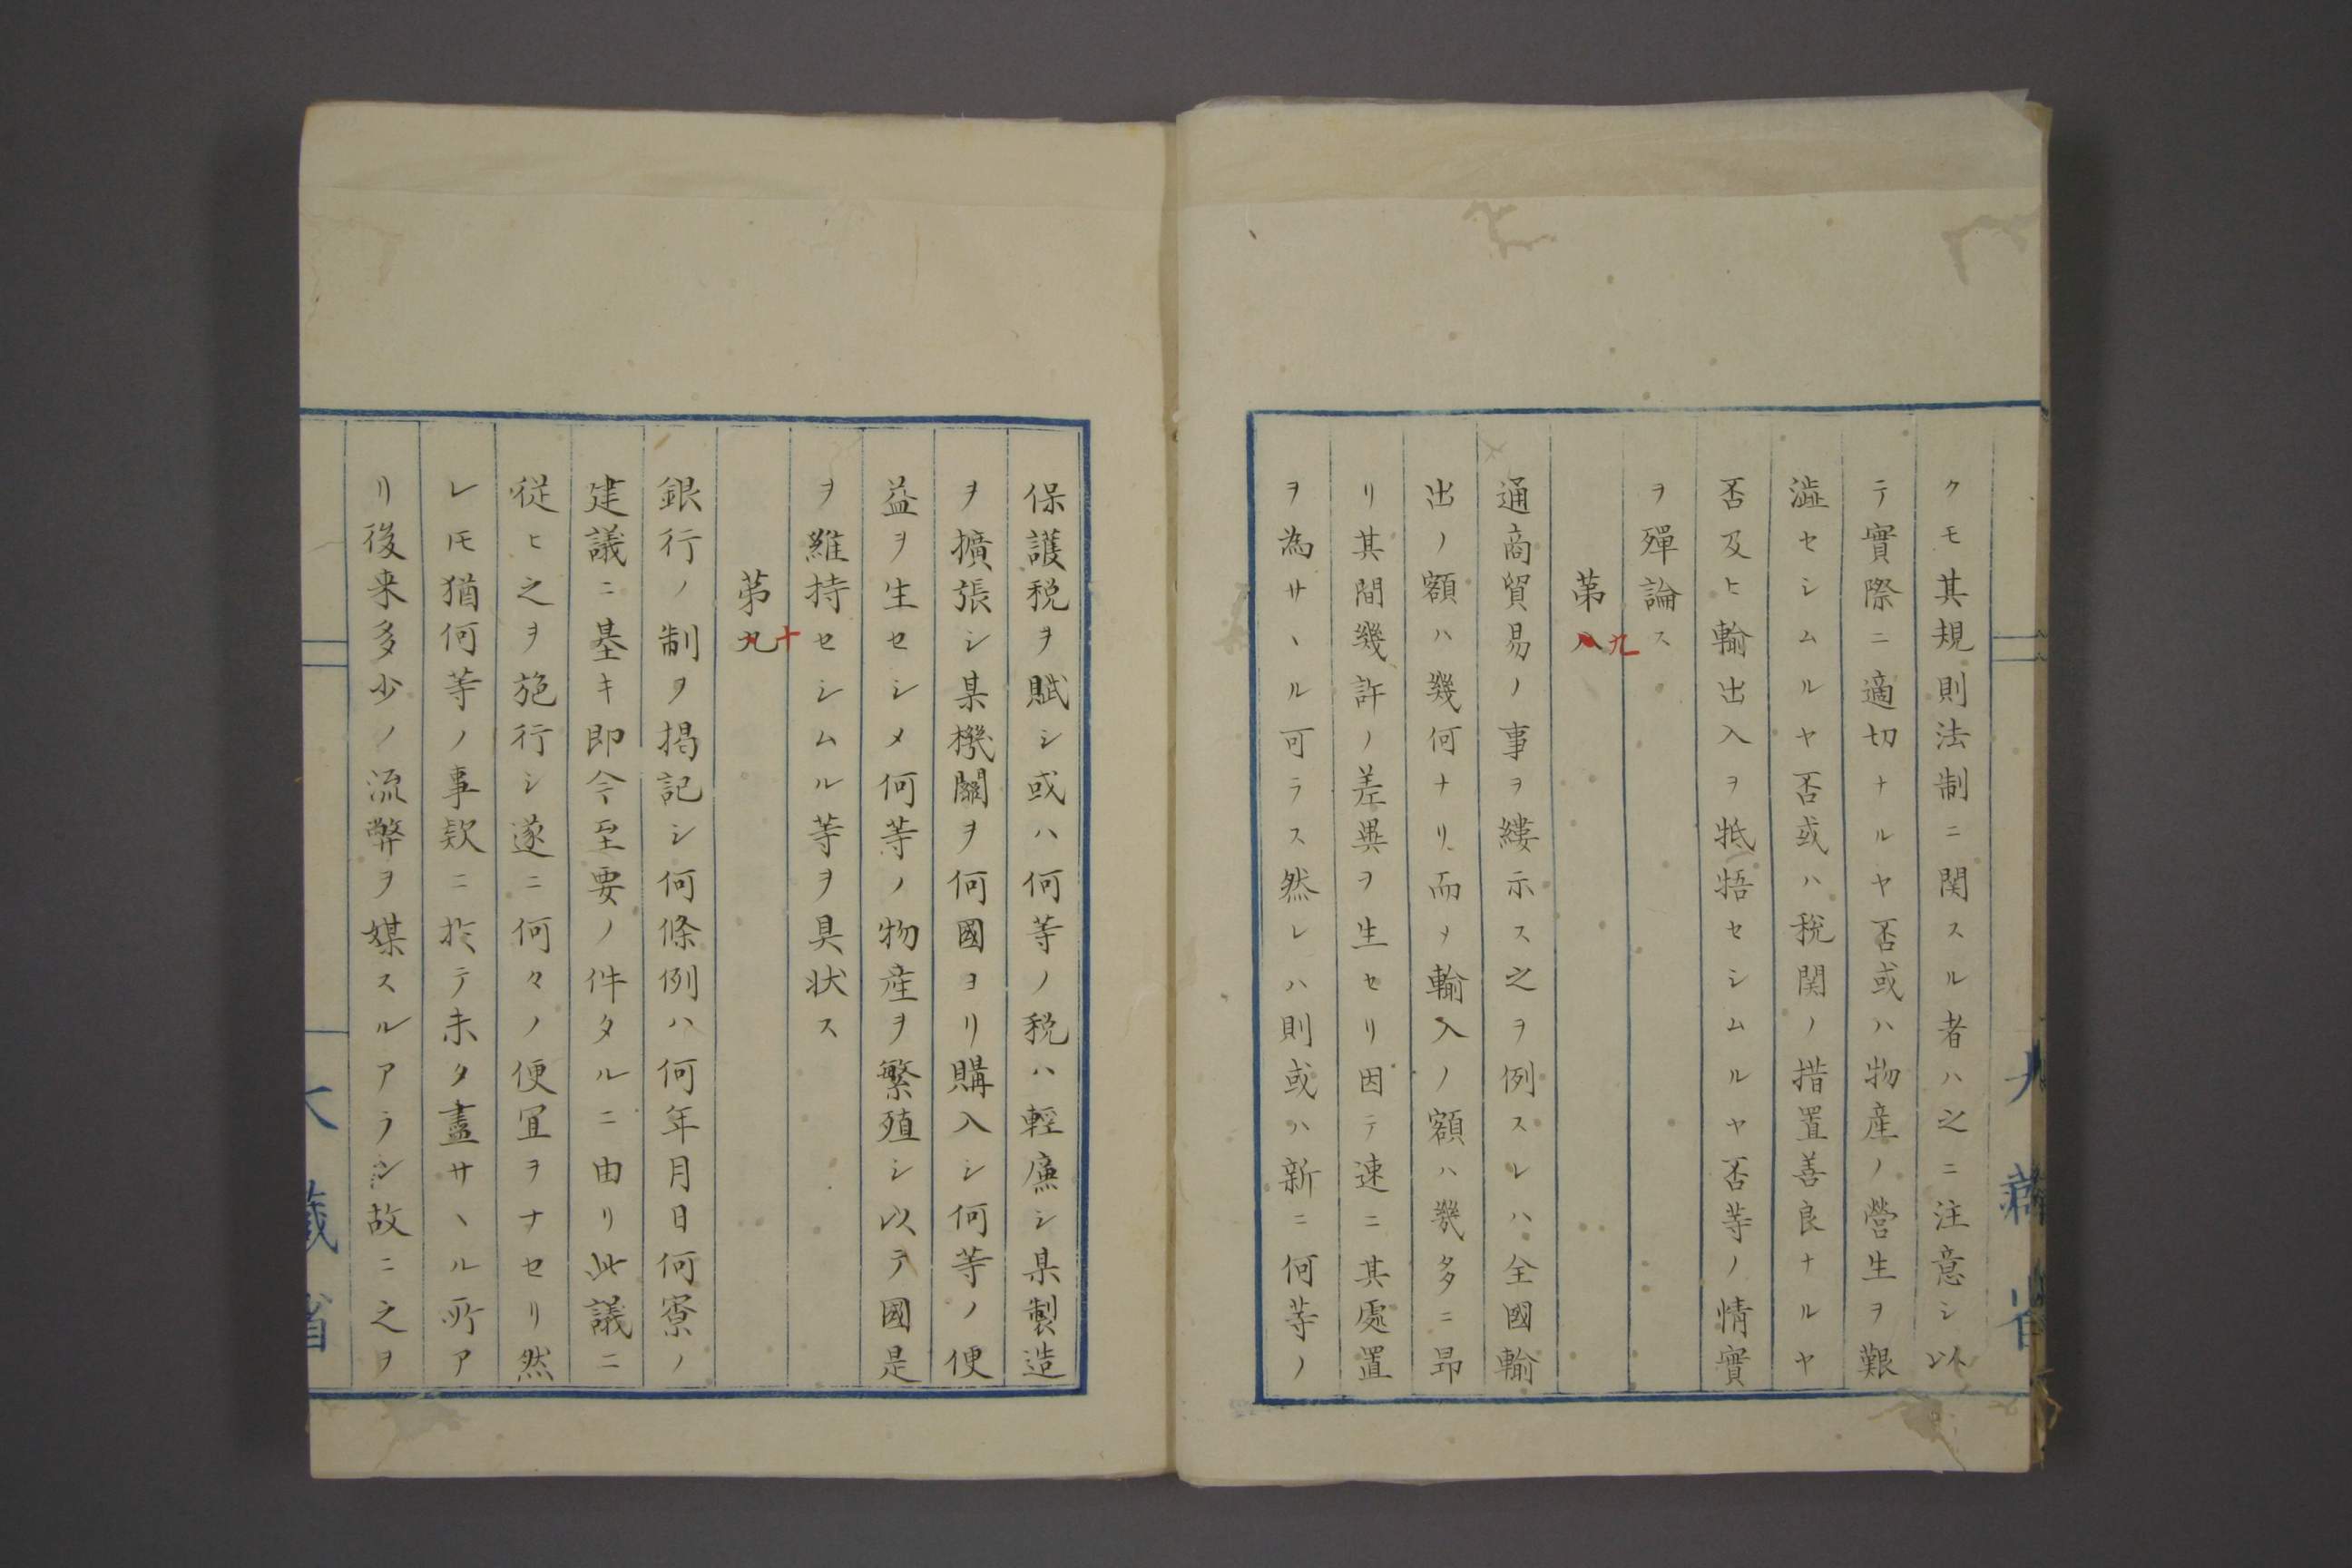 クモ其規則法制ニ関スル者ハ之ニ注意シ以
テ實際ニ適切ナルヤ否或ハ物産ノ營生ヲ艱
澁セシムルヤ否或ハ税関ノ措置善良ナルヤ
否及ヒ輸出入ヲ抵牾セシムルヤ否等ノ情實
ヲ殫論ス
第八九
通商貿易ノ事ヲ縷示ス之ヲ例スレハ全國輸
出ノ額ハ幾何ナリ而ヿ輸入ノ額ハ幾多ニ昂
リ其間幾許ノ差異ヲ生セリ因テ速ニ其處置
ヲ為サヽル可ラス然レハ則或ハ新ニ何等ノ
保護税ヲ賦シ或ハ何等ノ税ハ輕廉シ某製造
ヲ擴張シ某機關ヲ何國ヨリ購入シ何等ノ便
益ヲ生セシメ何等ノ物産ヲ繁殖シ以テ國是
ヲ維持セシムル等ヲ具状ス
第九十
銀行ノ制ヲ掲記シ何條例ハ何年月日何寮ノ
建議ニ基キ即今至要ノ件タルニ由リ此議ニ
従ヒ之ヲ施行シ遂ニ何々ノ便宜ヲナセリ然
レ𪜈猶何等ノ事欵ニ於テ未タ盡サヽル所ア
リ後来多少ノ流弊ヲ媒スルアラン故ニ之ヲ
大藏省